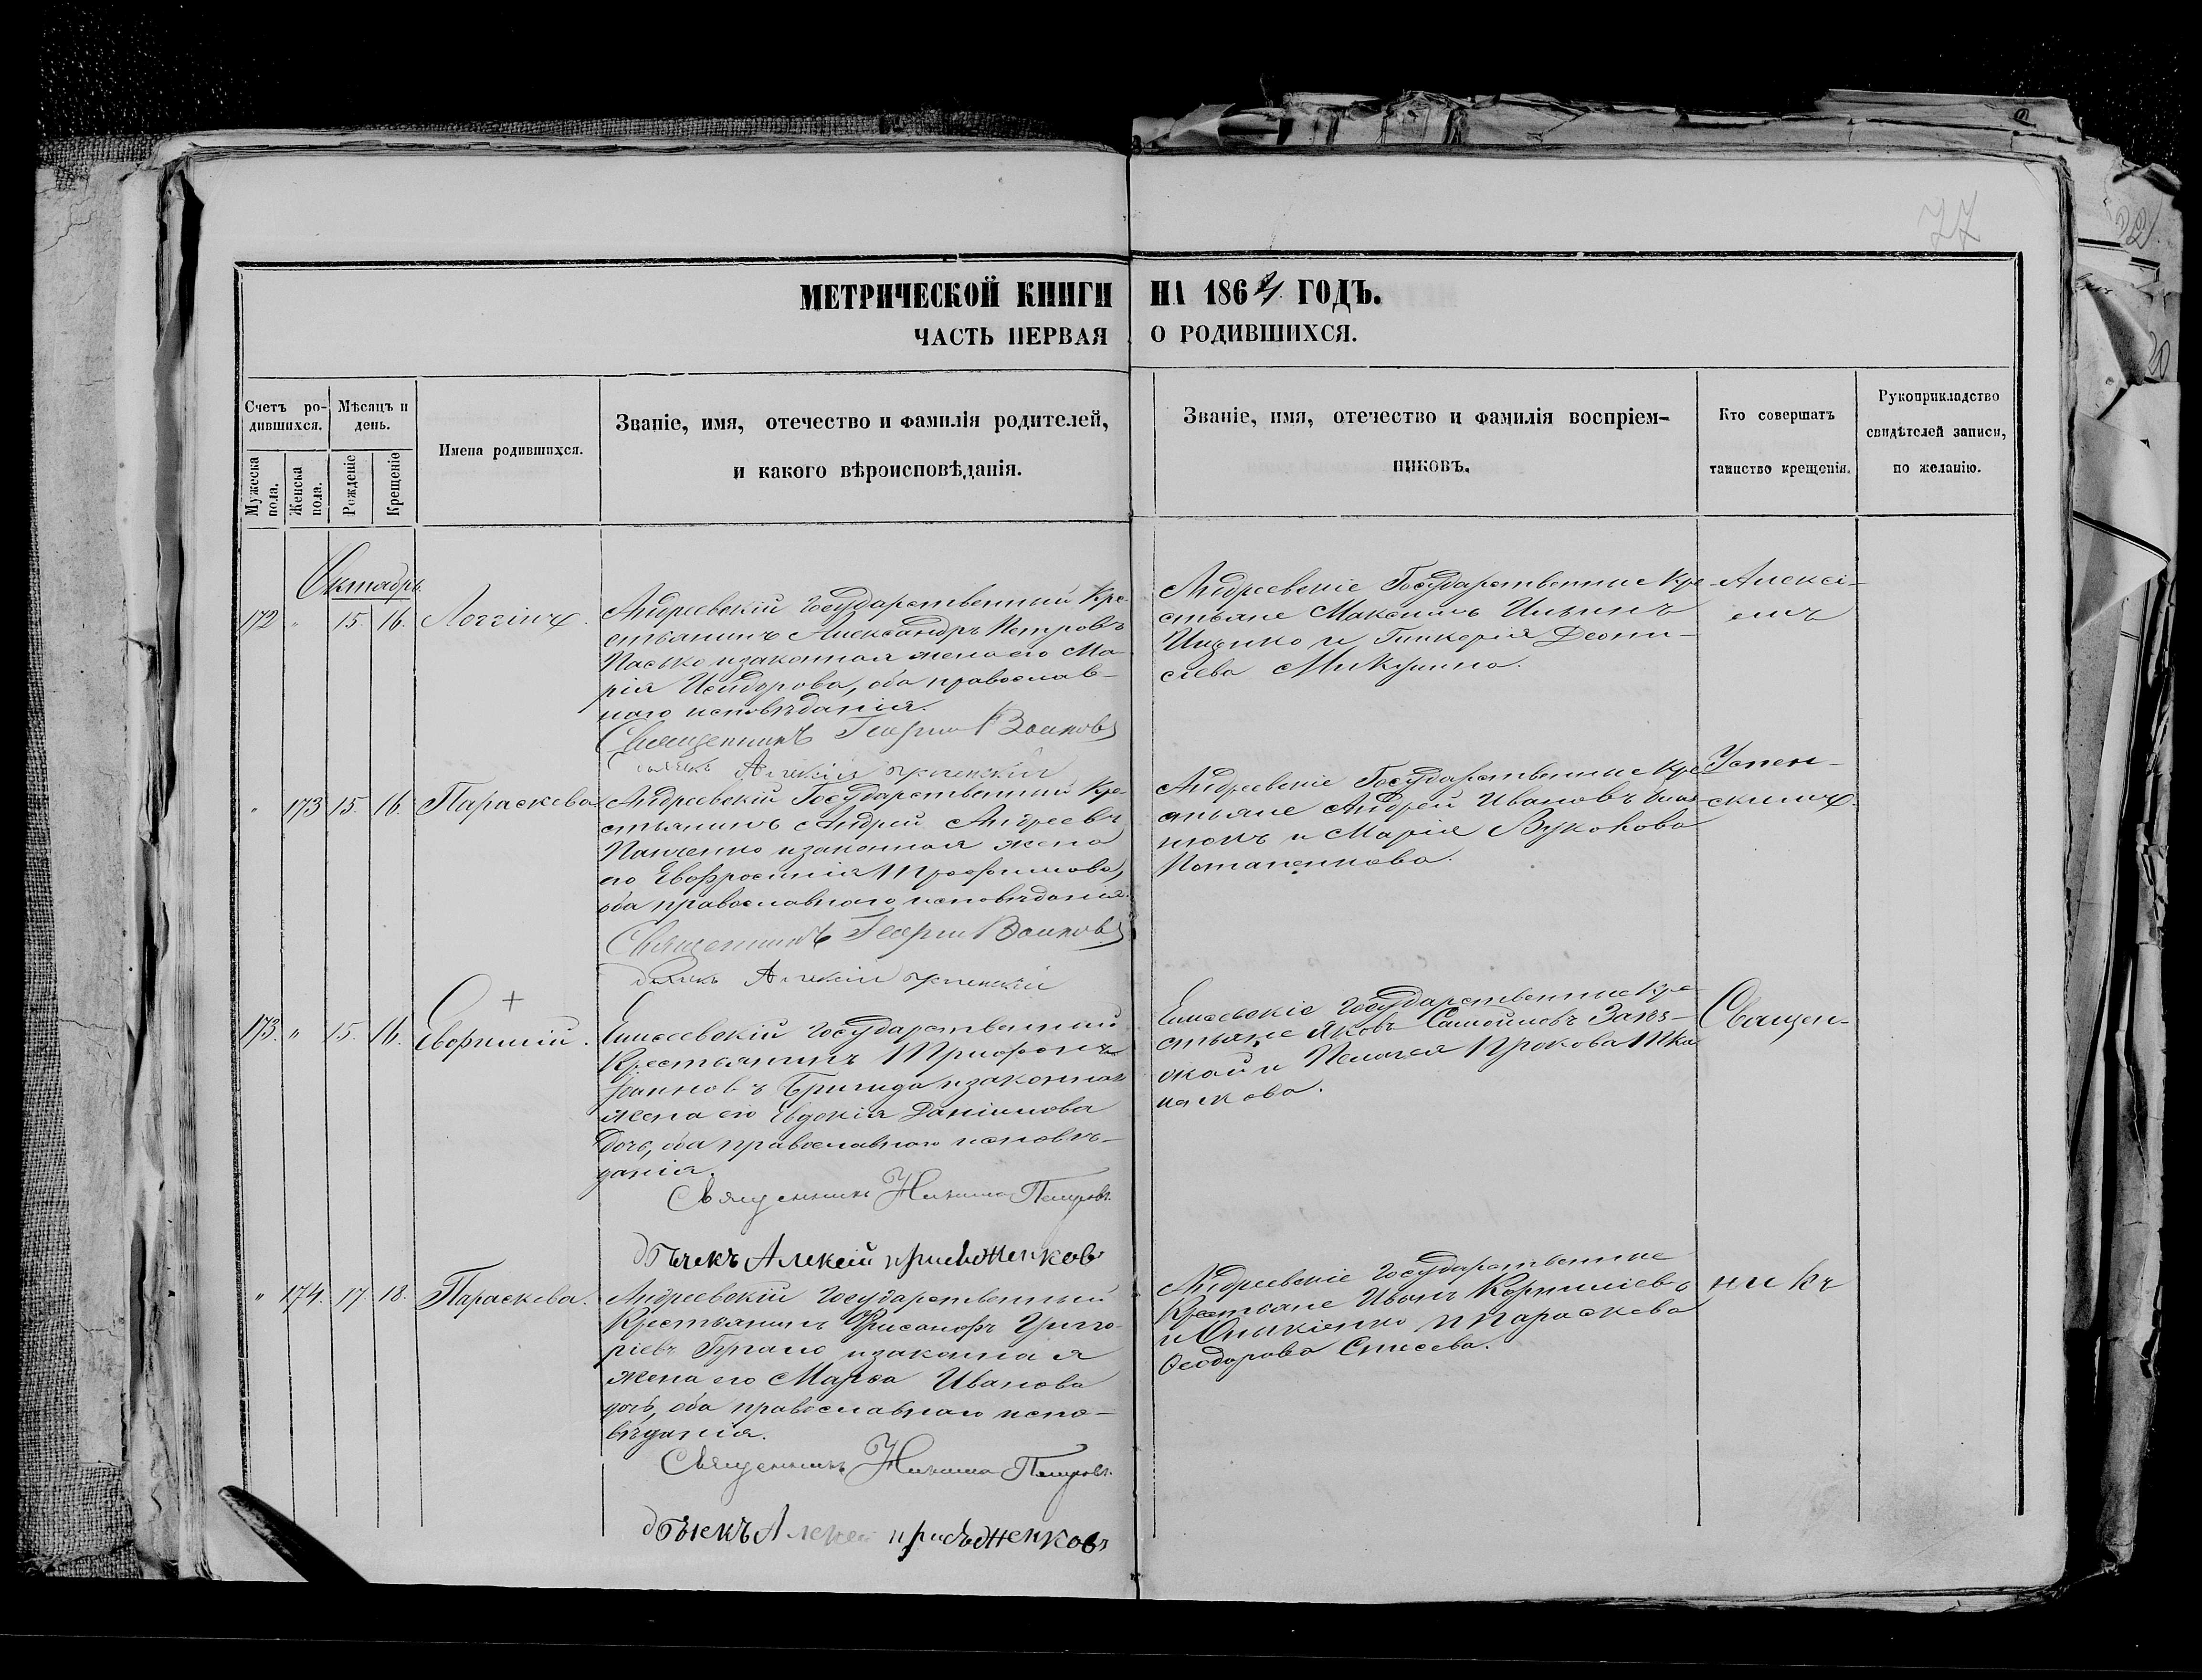 77
МЕТРИЧЕСКОЙ КНИГИ НА 1864 ГОДЪ.
ЧАСТЬ ПЕРВАЯ О РОДИВШИХСЯ.
Счетъ ро-
дившихся.
Мужеска
пола.
Женска
пола.
Мѣсяцъ и
день.
Рожденіе
Крещеніе
Имена родившихся.
Званіе, имя, отечество и фамилія родителей,
и какого вѣроисповѣданія.
Званіе, имя, отечество и фамилія воспріем-
никовъ.
Кто совершатъ
таинство крещенія.
Рукоприкладство
свидѣтелей записи,
по желанію.
Октябрь
172 " 15. 16. Логгинъ.
Андреевскій Государственный Кре-
стьянинъ Александръ Петровъ
Пасько и законная жена его Ма-
рія Исидорова, оба православ-
наго исповѣданія.
Священникъ Георгій Волковъ
Дьякъ Алексій Успенскій
Андреевскіе Государственные Кре-
стьяне Максимъ Ильинъ
Ищенко и Гликерія Деони-
сіева Микулина.
Алексі-
емъ
" 173 15. 16. Параскева
Андреевскій Государственный Кре-
стьянинъ Андрей Андреевъ
Панченко и законная жена
его Евфросинія Трофимова,
оба православнаго исповѣданія.
Священникъ Георгій Волковъ
Дьякъ Алексій Успенскій
Андреевскіе Государственные Кре-
стьяне Андрей Ивановъ
и Марія
Потапенкова.
Успен-
скимъ.
173. " 15. 16. Евфимій.
Елисеевскій Государственный
Крестьянинъ Трифонъ
Іоанновъ и законная
жена его Евдокія Даніилова
дочь, оба православнаго исповѣ-
данія.
Священникъ Никита Петровъ.
Дьячекъ Алексій
Елисеевскіе Государственные Кре-
стьяне Яковъ Самойловъ
и Пелагея
Священ-
" 174. 17. 18. Параскева.
Андреевскій Государственный
Крестьянинъ Григо-
ріевъ и законная
жена его Марѳа Иванова
дочь, оба православнаго испо-
вѣданія.
Священникъ Никита Петровъ.
Дьячекъ Алексей
Андреевскіе Государственные
Крестьяне Иванъ Корниліевъ
и Параскева
Ѳеодорова
никъ